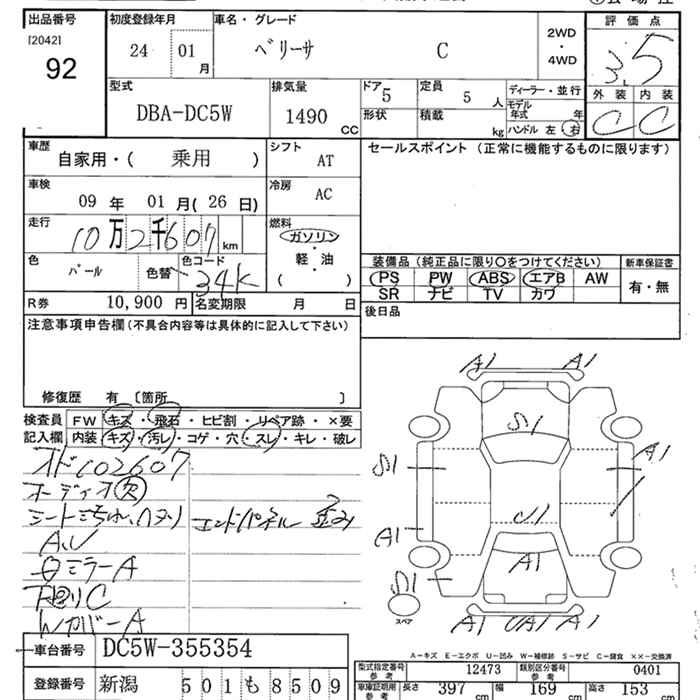 出品番号 初度登録年月 車名・グレード 2WD・4WD 評価点
[2042] 92 24 01月 ベリーサ C 3.5
型式 排気量 ドア 5 定員 5人 ディーラー・並行 外装 内装
DBA-DC5W 1490cc 形状 積載 kg モデル年式 年 C C
ハンドル 左 右
車歴 シフト セールスポイント (正常に機能するものに限ります)
自家用・( 乗用 ) AT
車検 冷房
09年 01月(26日) AC
走行 燃料
10万2千607km ガソリン
軽・油
( )
色 パール 色替 色コード 34K
装備品 (純正品に限り○をつけてください) 新車保証書
PS PW ABS エアB AW 有・無
SR ナビ TV カワ
R券 10,900円 名変期限 月 日
後日品
注意事項申告欄(不具合内容等は具体的に記入して下さい)
修復歴 有 〔箇所 〕
検査員 FW キズ・飛石・ヒビ割・リペア跡・×要
記入欄 内装 キズ・汚レ・コゲ・穴・スレ・キレ・破レ
オド102607
オーディオ欠
シート ヨゴレ、ハタリ エンドパネル 歪み
A,U
ミラーA
下回りC
WカバーA
A1 A1
S1
S1 A1
U1
A1 A1
S1
スペア
A1 UA1 A1
A-キズ E-エクボ U-凹み W-補修跡 S-サビ C-腐食 ××-交換済
車台番号 DC5W-355354
型式指定番号 参考 12473 類別区分番号 参考 0401
登録番号 新潟 501も8509
車庫証明用 参考 長さ 397cm 幅 169cm 高さ 153cm